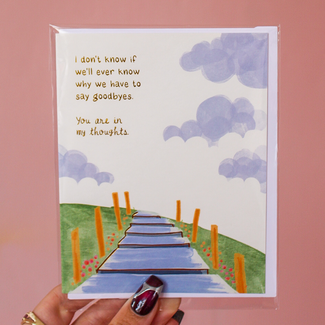 I don't know if
we'll ever know
why we have to
say goodbyes.
You are in
my thoughts.